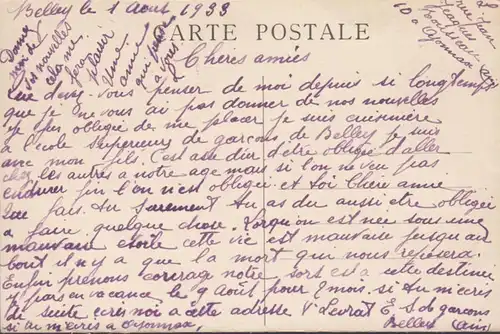 Belley le 1 Août 1933
CARTE POSTALE
Donne moi de
vos nouvelles
cela me
fera
plaisir
Une
amie
qui pense
a vous
10
Oyonnax
Ain
Chères amiés
Que devez-vous penser de moi depuis si longtemps
que je ne vous ai pas donner de nos nouvelles
je fus obligée de me placer je suis cuisinière
a l'école Superieurs de garçons de Belley je suis
avec mon fils. C'est asse dur d'être obligée d'aller
chez les autres a notre age mais si l'on ne veu pas
endurer fin l'on n'est obligée et toi Chère amie
que fais tu surement tu as du aussi être obligée
a faire quelque chose. Lorsqu'on est née sous une
mauvaise étoile cette vie est mauvaise jusqu'au
bout il n'y a que la mort qui nous reposera.
Enfin prenons courage notre sors est a cette destinée
y pars en vacance le 9 Août pour 2 mois. si tu m'écris
de suite écris moi a cette adresse V Levrat E. S de garçons
si tu m'écris a Oyonnax Belley Ain